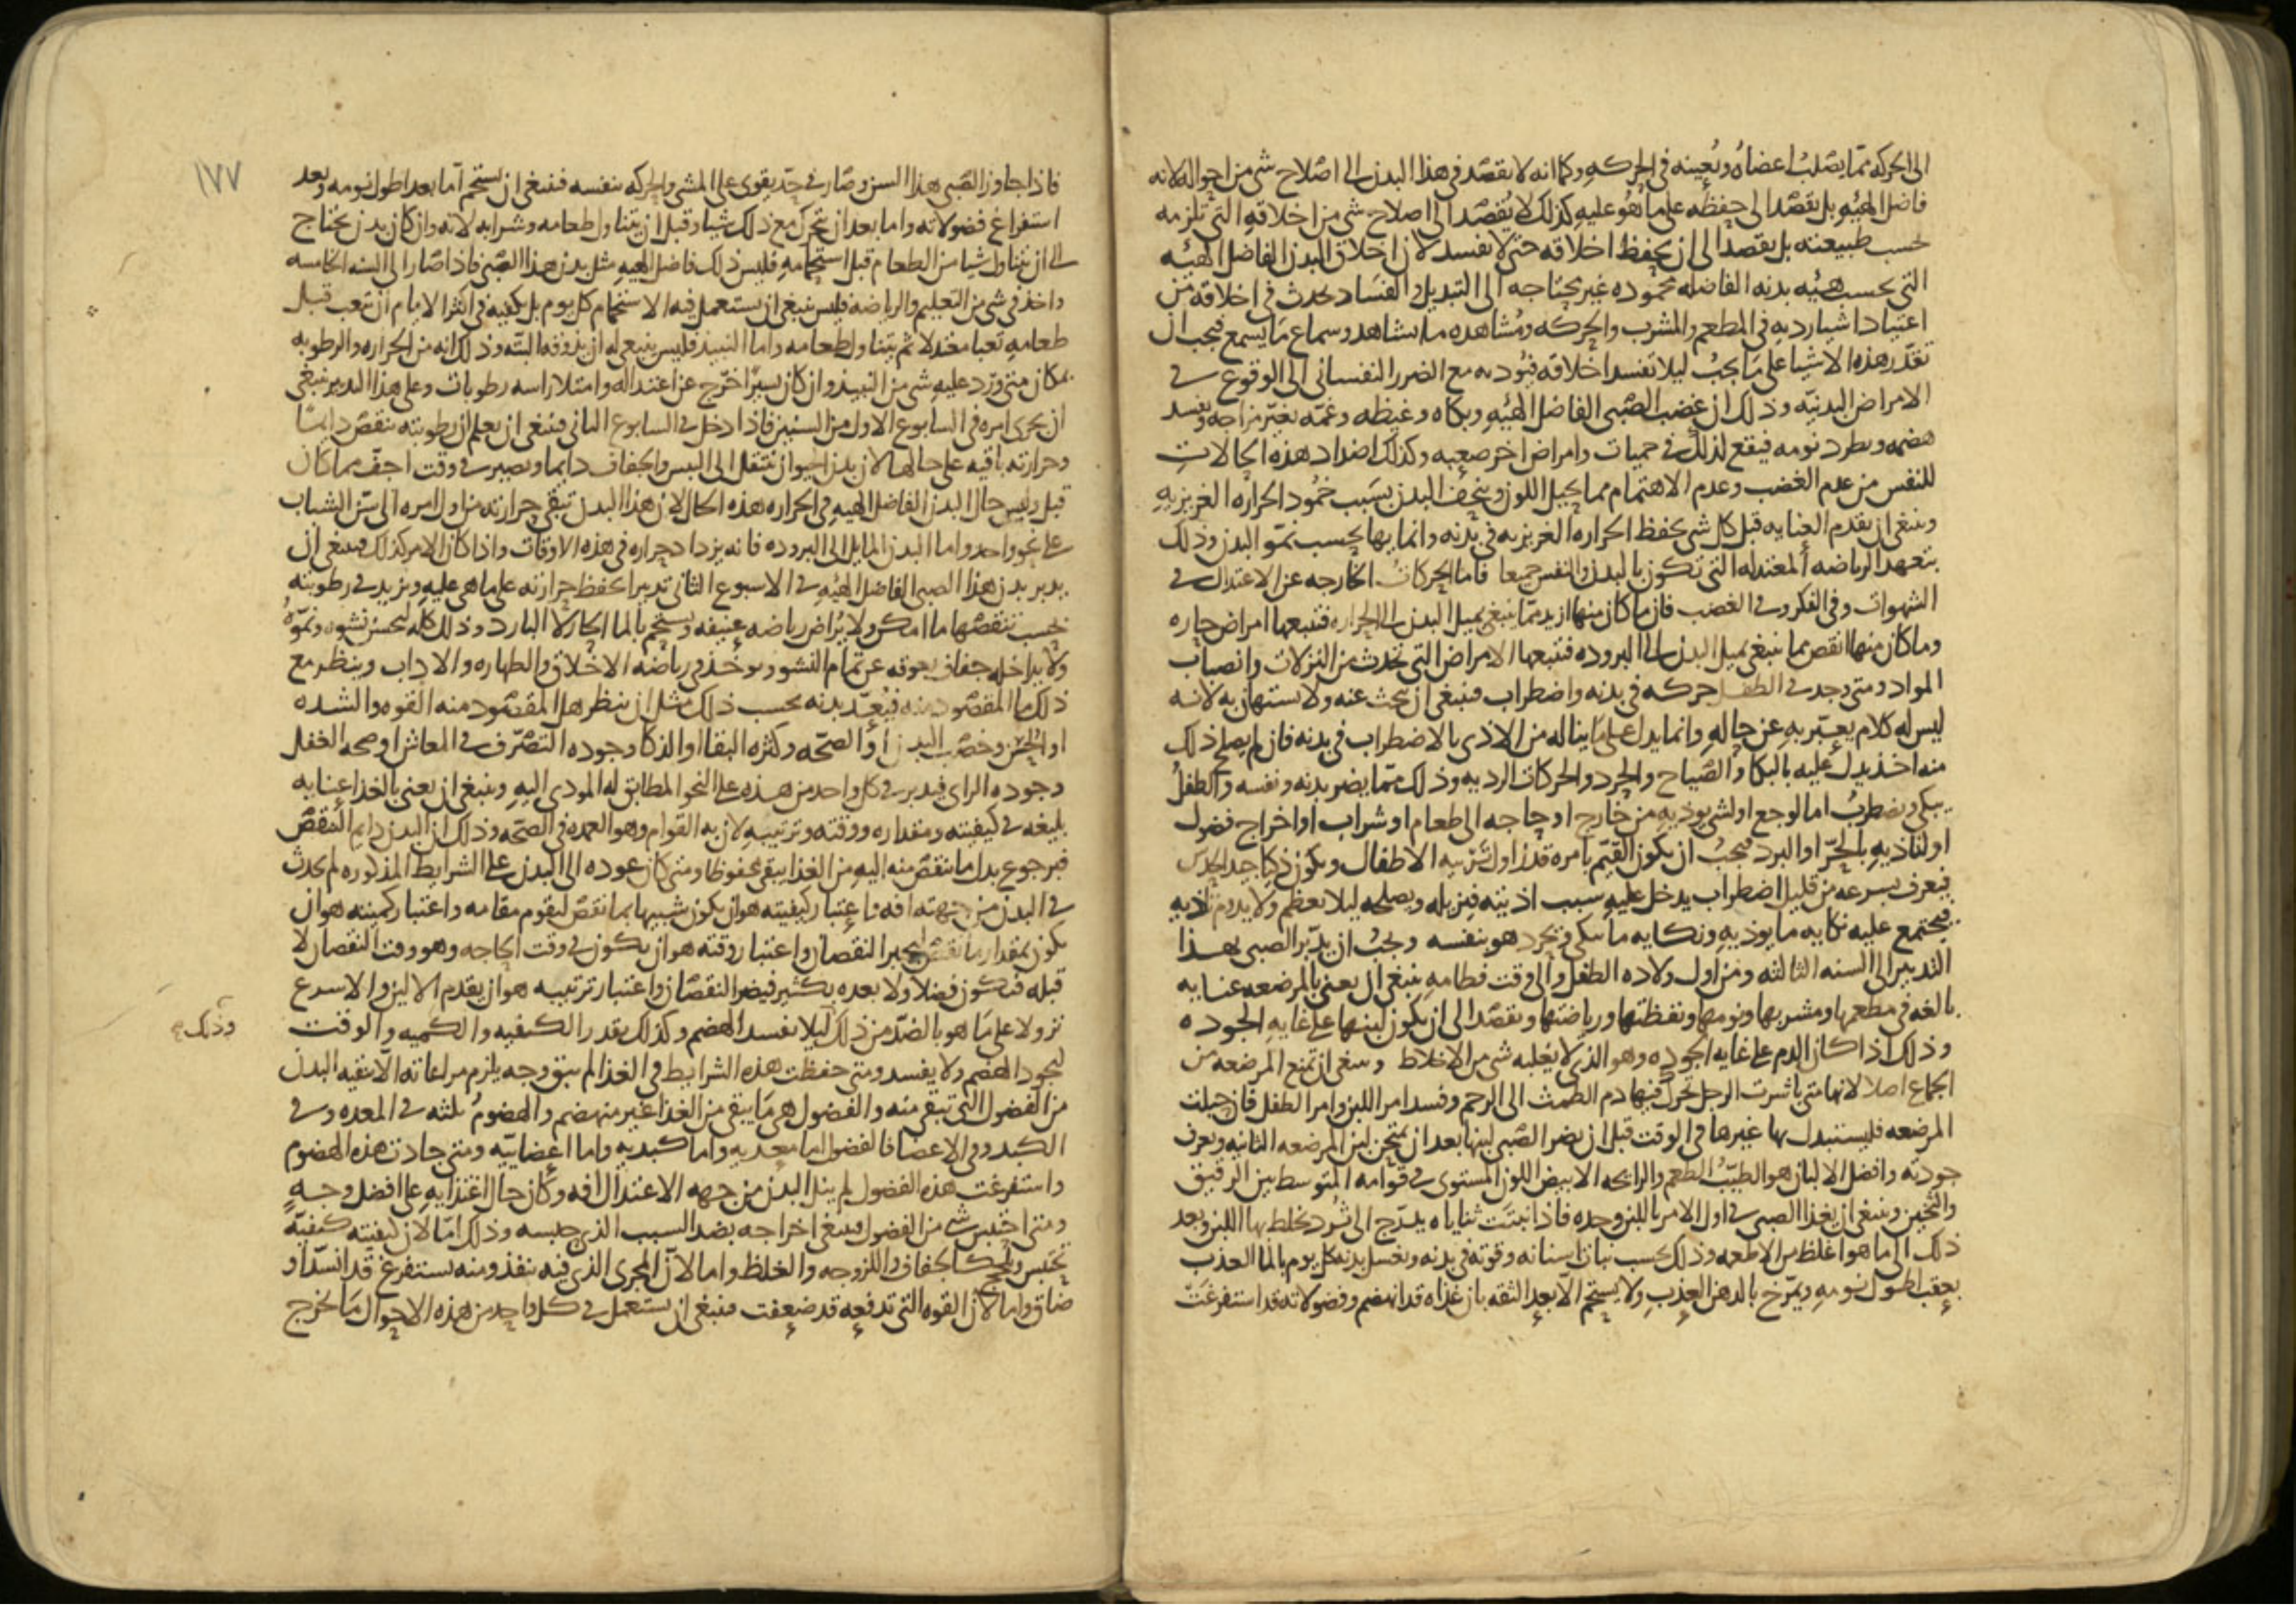 الى الحركه مما يصلب اعضاه ويعينه في الحركه وكما انه لا يقصد في هذا البدن الى اصلاح شي من احواله لانه
فاضل الهيه بل يقصد الى حفظه على ما هو عليه كذلك لا يقصد الى اصلاح شي من اخلاقه التي تلزمه
بحسب طبيعته بل يقصد الى ان يحفظ اخلاقه حتى لا تفسد لان اخلاق البدن الفاضل الهيئه
التي بحسب هيئه بدنه الفاضله محموده غير محتاجه الى التبديل والفساد يحدث في اخلاقه من
اعتياد اشيا رديه في المطعم والمشرب والحركه ومشاهده ما يشاهد وسماع ما يسمع فيجب ان
تقدر هذه الاشيا على ما يجب ليلا تفسد اخلاقه فتوديه مع الضرر النفساني الى الوقوع في
الامراض البدنيه وذلك ان غضب الصبي الفاضل الهيه وبكاه وغيظه وغمه يغير مزاجه ويفسد
هضمه ويطرد نومه فيقع لذلك في حميات وامراض اخر صعبه وكذلك اضداد هذه الحالات
للنفس من عدم الغضب وعدم الاهتمام مما يحيل اللون وينحف البدن بسبب خمود الحراره الغريزيه
وينبغي ان يقدم العنايه قبل كل شي بحفظ الحراره الغريزيه في بدنه وانمايها بحسب نمو البدن وذلك
بتعهد الرياضه المعتدله التي تكون بالبدن والنفس جميعا فاما الحركات الخارجه عن الاعتدال في
الشهوات وفي الفكر وفي الغضب فان ما كان منها ازيد مما ينبغي يميل البدن الى الحراره فتتبعها امراض حاره
وما كان منها انقص مما ينبغي يميل البدن الى البروده فتتبعها الامراض التي تحدث من النزلات وانصباب
المواد ومتى وجد في الطفل حركه في بدنه واضطراب فينبغي ان يبحث عنه ولا يستهان به لانه
ليس له كلام يعبر به عن حاله وانما يدل على ما يناله من الاذى بالاضطراب في بدنه فان لم يصلح ذلك
منه اخذ يدل عليه بالبكا والصياح والحرد والحركات الرديه وذلك مما يضر بدنه ونفسه والطفل
يبكي ويضطرب اما لوجع او لشي يوذيه من خارج او حاجه الى طعام او شراب او اخراج فضول
او لتاذيه بالحر او البرد فيجب ان يكون القيم بامره قد زاول تربيه الاطفال ويكون ذكيا جيد الحدس
فيعرف بسرعه من قليل اضطراب يدخل عليه سبب اذيته فيزيله ويصلحه ليلا يعظم ولا يدوم تاذيه
فيجتمع عليه نكايه ما يوذيه ونكايه ما يبكي ويحرد هو بنفسه ويجب ان يدبر الصبي بهذا
التدبير الى السنه الثالثه ومن اول ولاده الطفل والى وقت فطامه ينبغي ان يعنى بالمرضعه عنايه
بالغه في مطعمها ومشربها ونومها ويقظتها ورياضتها ويقصد الى ان يكون لبنها على غايه الجوده
وذلك اذا كان الدم على غايه الجوده وهو الذي لا يغلبه شي من الاخلاط وينبغي ان تمنع المرضعه من
الجماع اصلا لانها متى باشرت الرجل تحرك فيها دم الطمث الى الرحم وفسد امر اللبن وامر الطفل فان حبلت
المرضعه فليستبدل بها غيرها في الوقت قبل ان يضر الصبي لبنها بعد ان يمتحن لبن المرضعه الثانيه ويعرف
جودته وافضل الالبان هو الطيب الطعم والرايحه الابيض اللون المستوي في قوامه المتوسط بين الرقيق
والثخين وينبغي ان يغذا الصبي في اول الامر باللبن وحده فاذا نبتت ثناياه يدرج الى ثرد يخلط بها اللبن وبعد
ذلك الى ما هو اغلظ من الاطعمه وذلك بحسب نبات اسنانه وقوته في بدنه ويغسل بدنه كل يوم بالما العذب
بعقب اطول نومه ويمرخ بالدهن العذب ولا يستحم الا بعد الثقه بان غذاه قد انهضم وفضولاته قد استفرغت
١٧٧
فاذا جاوز الصبي هذا السن وصار في حد يقوى على المشي والحركه بنفسه فينبغي ان يستحم اما بعد اطول نومه وبعد
استفراغ فضولاته واما بعد ان يتحرك مع ذلك شيا وقبل ان يتناول طعامه وشرابه لانه وان كان بدن يحتاج
الى ان يتناول شيا من الطعام قبل استحمامه فليس ذلك فاضل الهيه مثل بدن هذا الصبي فاذا صار الى السنه الخامسه
واخذ في شي من التعليم والرياضه فليس ينبغي ان يستعمل فيه الاستحمام كل يوم بل يكفيه في اكثر الايام ان يتعب قبل
طعامه تعبا معتدلا ثم يتناول طعامه واما النبيذ فليس ينبغي له ان يذوقه البته وذلك انه من الحراره والرطوبه
بمكان متى ورد عليه شي من النبيذ وان كان يسيرا خرج عن اعتداله وامتلا راسه رطوبات وعلى هذا التدبير ينبغي
ان يجرى امره في السابوع الاول من السنين فاذا دخل في السابوع الثاني فينبغي ان يعلم ان رطوبته تنقص دايما
وحرارته باقيه على حالها لان بدن الحيوان ينتقل الى اليبس والجفاف دايما ويصير في وقت اجف مما كان
قبل وليس حال البدن الفاضل الهيه في الحراره هذه الحال لان هذا البدن تبقى حرارته من اول امره الى سن الشباب
على نحو واحد واما البدن المايل الى البروده فانه يزداد حراره في هذه الاوقات واذا كان الامر كذلك فينبغي ان
يدبر بدن هذا الصبي الفاضل الهيه في الاسبوع الثاني تدبيرا يحفظ حرارته على ما هي عليه ويزيد في رطوبته
بحسب تنقصها ما امكن ولا يراض رياضه عنيفه ويستحم بالما الحار لا البارد وذلك كله ليحسن نشوه ونموه
ولا يداخله جفاف يعوقه عن تمام النشو ويوخذ في رياضه الاخلاق والطهاره والاداب وينظر مع
ذلك ما المقصود منه فيعد بدنه بحسب ذلك مثل ان ينظر هل المقصود منه القوه والشده
او الحسن وخصب البدن او الصحه وكثره البقا او الذكا وجوده التصرف في المعاش او صحه العقل
وجوده الراي فيدبر في كل واحد من هذه على النحو المطابق له المودي اليه وينبغي ان يعنى بالغذا عنايه
بليغه في كيفيته ومقداره ووقته وترتيبه لان به القوام وهو العمده في الصحه وذلك ان البدن دايم التنقص
فبرجوع بدل ما نقص منه اليه من الغذا يبقى محفوظا ومتى كان عوده الى البدن على الشرايط المذكوره لم يحدث
في البدن من جهته افه واعتبار كيفيته هو ان يكون شبيها بما نقص ليقوم مقامه واعتبار كميته هو ان
يكون بمقدار ما نقص ليجبر النقصان واعتبار وقته هو ان يكون في وقت الحاجه وهو وقت النقصان لا
قبله فيكون فضلا ولا بعده بكثير فيضر النقصان واعتبار ترتيبه هو ان يقدم الالين والاسرع
نزولا على ما هو بالضد من ذلك ليلا يفسد الهضم وكذلك يقدر الكيفيه والكميه والوقت
وذلك
ليجود الهضم ولا يفسد ومتى حفظت هذه الشرايط في الغذا لم يبق وجه يلزم مراعاته الا تنقيه البدن
من الفضول التي تبقى منه والفضول هي ما يبقى من الغذا غير منهضم والهضوم ثلثه في المعده وفي
الكبد وفي الاعضا فالفضول اما معديه واما كبديه واما اعضاييه ومتى جادت هذه الهضوم
واستفرغت هذه الفضول لم ينل البدن من جهه الاعتدال افه وكان حال اغتذايه على افضل وجه
ومتى احتبس شي من الفضول فينبغي اخراجه بضد السبب الذي حبسه وذلك اما لان كيفيته كيفيه
تحبس وتلحج كالجفاف واللزوجه والغلظ واما لان المجرى الذي فيه ينفذ ومنه يستفرغ قد انسد او
ضاق واما لان القوه التي تدفعه قد ضعفت فينبغي ان يستعمل في كل واحد من هذه الاحوال ما يخرج